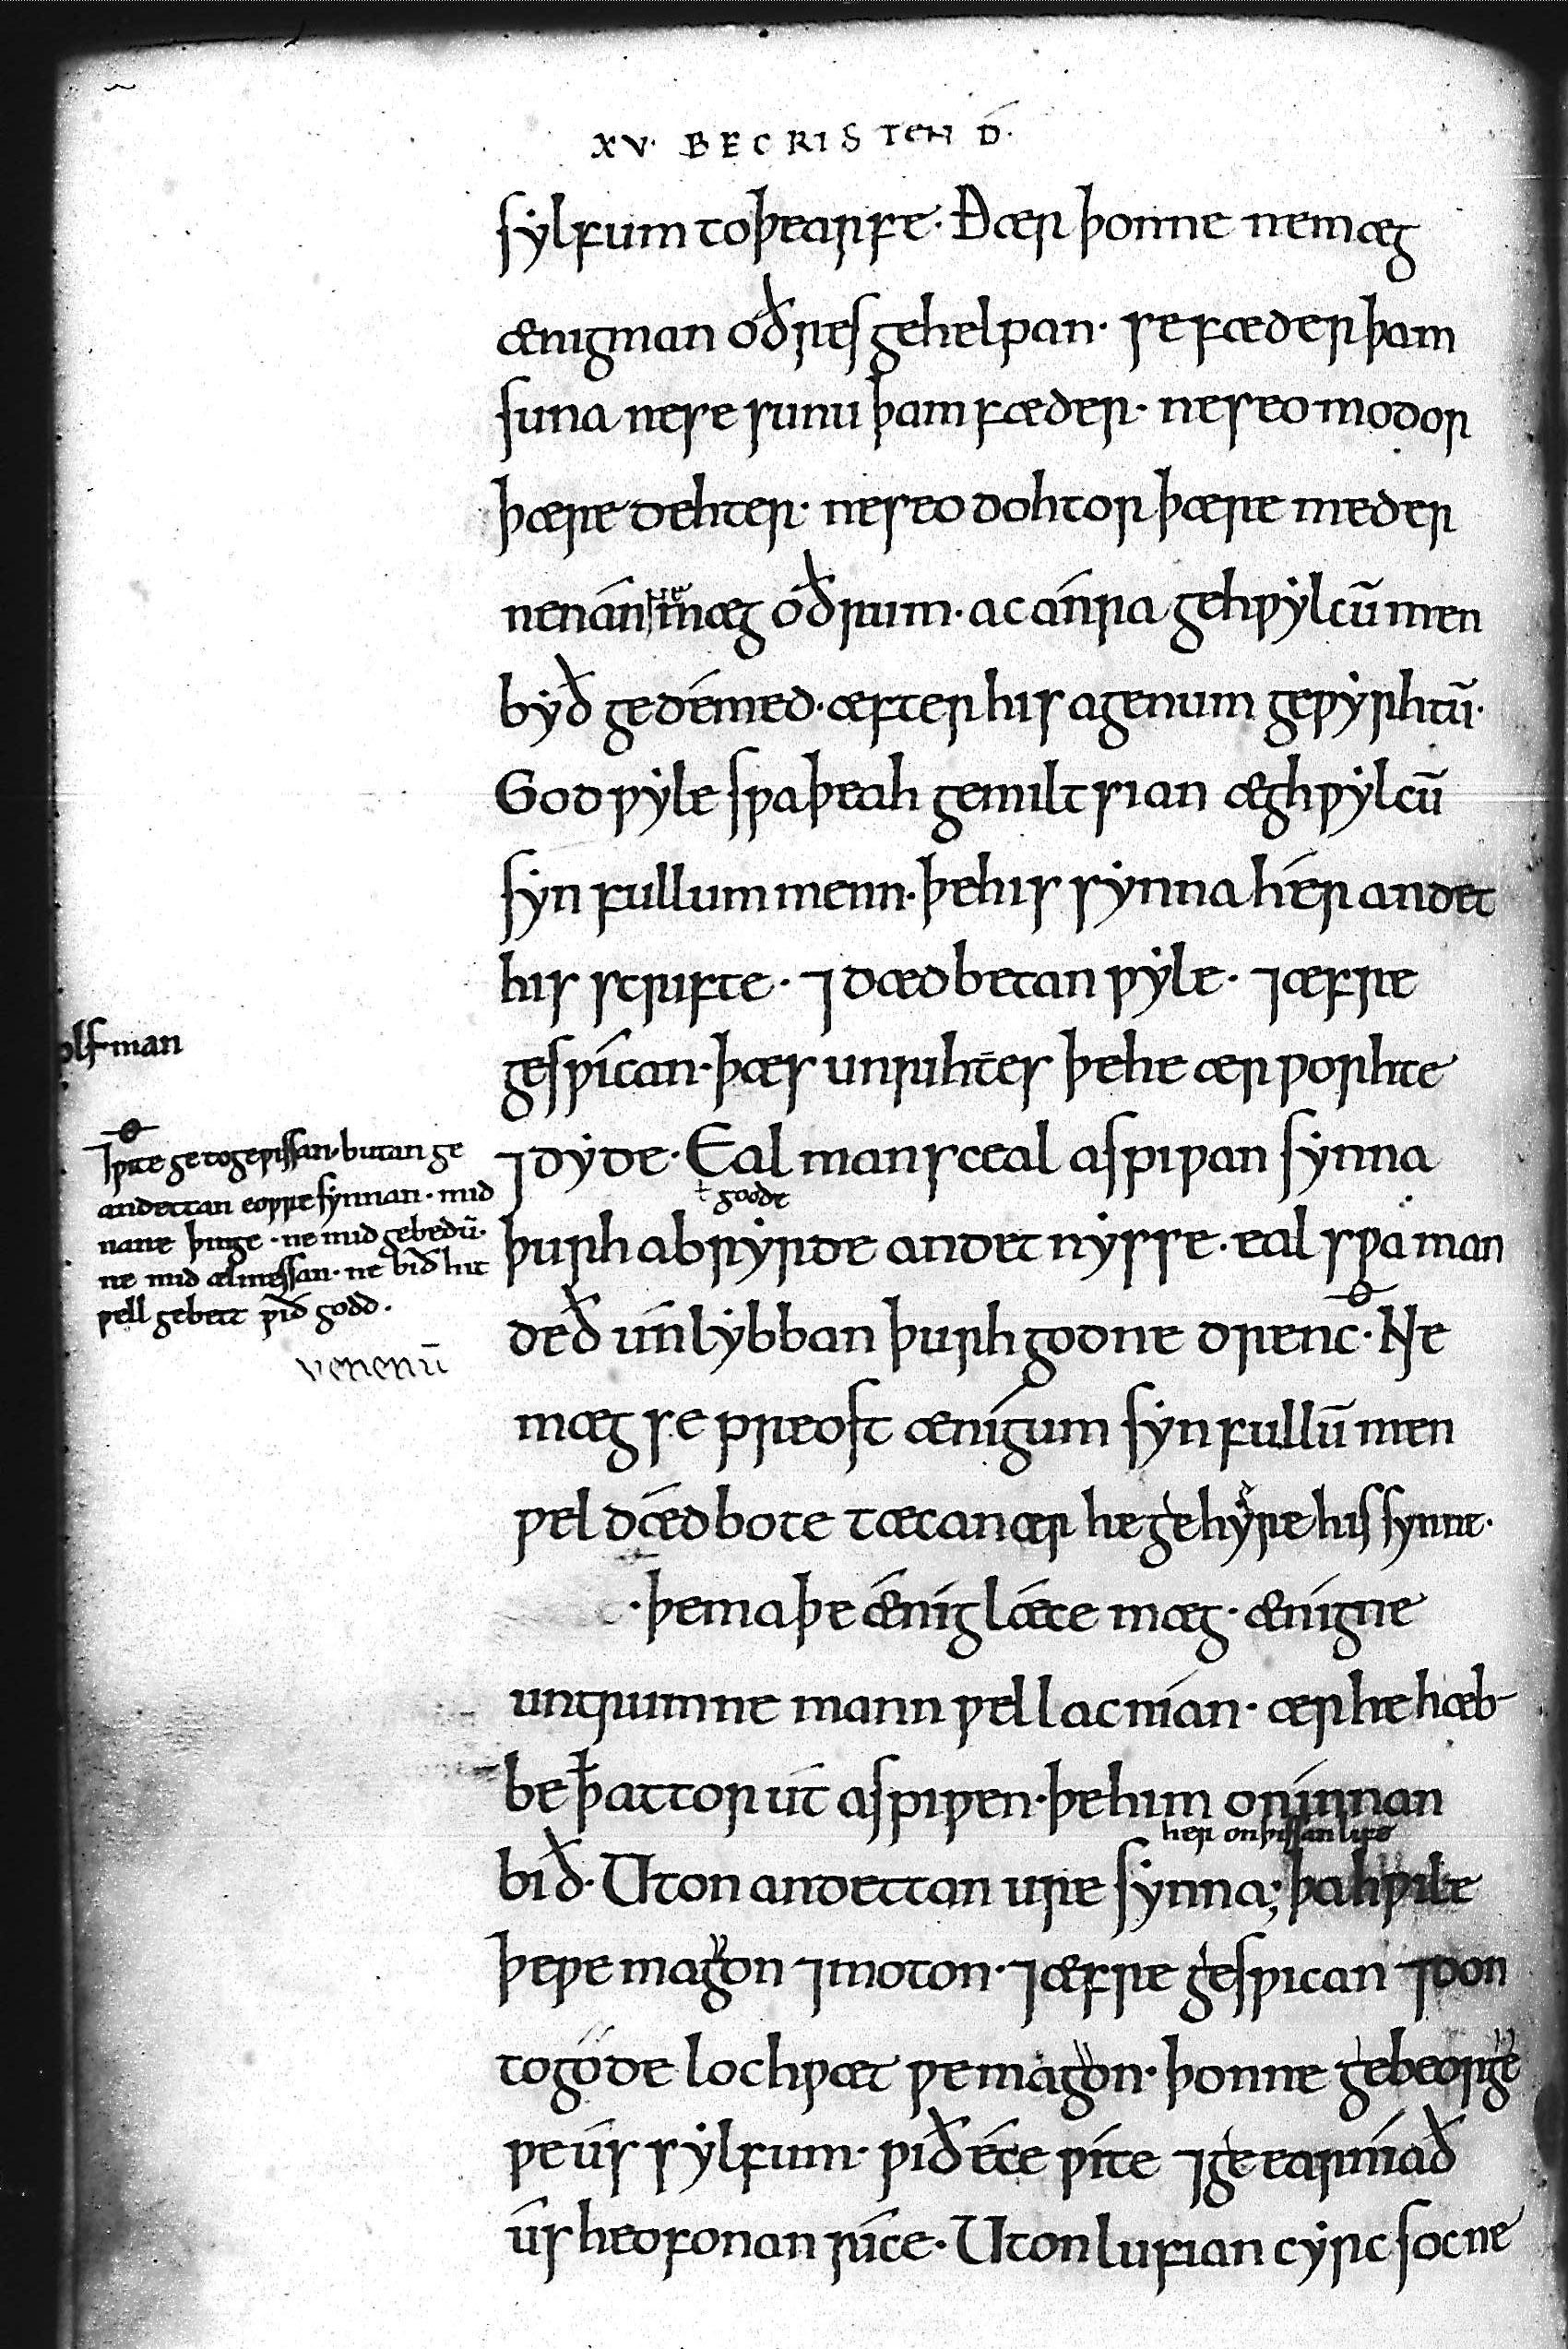 XV. BE CRISTEN D̄.
sylfum to þearfe. Ðær þonne ne mæg
ænig man oðres gehelpan. se fæder þam
suna ne se sunu þam fæder. ne seo modor
þære dehter. ne seo dohtor þære meder
ne nán mæg óðrum. ac ánra gehƿylcū men
byð gedémed. æfter his agenum geƿyrhtū.
God ƿyle sƿa þeah gemiltsian æghƿylcū
synfullum menn. þe his synna hér andet
his scrifte. ⁊ dædbetan ƿyle. ⁊ æfre
gesƿícan. þæs unrihtes þe he ær ƿorhte
⁊ dyde. Eal man sceal aspiƿan synna
goode
þurh abryrde andetnysse. eal sƿa man
deð únlybban þurh godne drenc. Ne
mæg se preost ænígum synfullū men
ƿel dǽdbote tæcan ær he gehyre his synne.
. þe ma þe ǽnig lǽce mæg. ænigne
untrumne mann ƿel lacnian. ær he hæb-
be ꝥ attor út aspiƿen. þe him on ínnan
her on þissan life
bið. Uton andettan ure synna; þa hƿile
þe ƿe magon ⁊ moton. ⁊ æfre gesƿican ⁊ don
to góde loc hƿæt ƿe magon. þonne gebeorge
ƿe ús sylfum. ƿið éce ƿíte ⁊ geearníað
ús heofonan ríce. Uton lufian cyrcsocne
man
⁊ ƿite ge to geƿissan. butan ge
andettan eoƿre synnan. mid
nane þinge. ne mid gebedū.
ne mid ælmessan. ne bið hit
ƿell gebett ƿið godd.
venenū